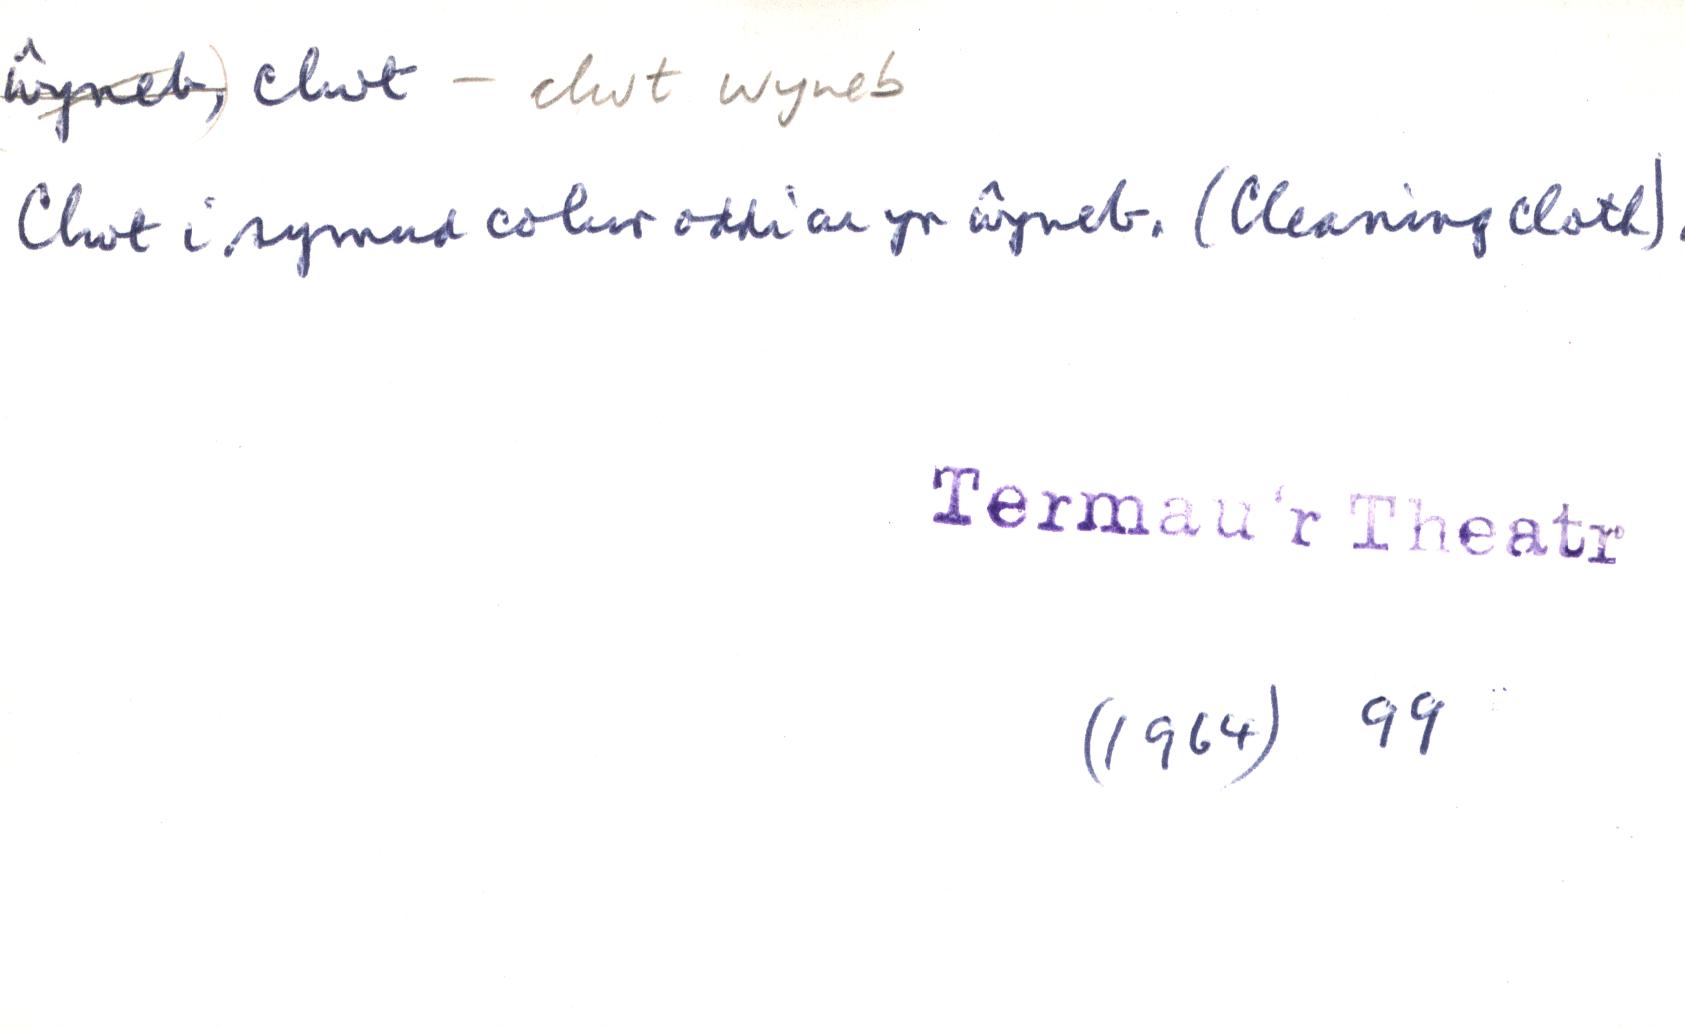 ŵyneb, clwt – clwt wyneb
Clwt i symud colur oddi ar yr ŵyneb. (Cleaning cloth).
Termau'r Theatr
(1964) 99